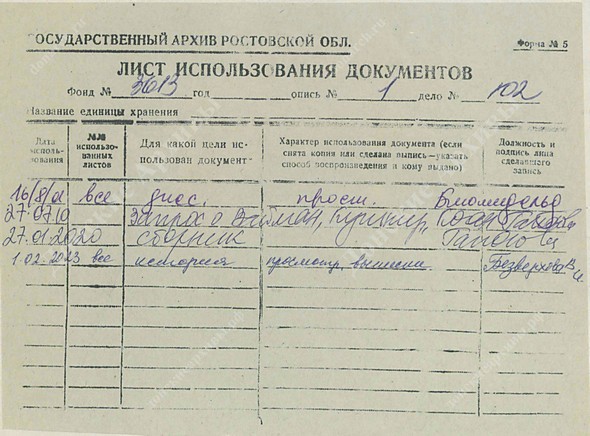 ГОСУДАРСТВЕННЫЙ АРХИВ РОСТОВСКОЙ ОБЛ.
Форма № 5
ЛИСТ ИСПОЛЬЗОВАНИЯ ДОКУМЕНТОВ
Фонд № 3613 год опись № 1 дело № 102
Название единицы хранения
Дата исполь-
зования
№№
использо-
ванных
листов
Для какой цели ис-
пользован документ
Характер использования документа (если
снята копия или сделана выпись—указать
способ воспроизведения и кому выдано)
Должность и
подпись лица
сделавшего
запись
16/8/01 все дисс. просм.
27.07.10 Запрос о
27.01.2020 сборник
1.02.2023 все история просмотр, выписки. Безверхова В.